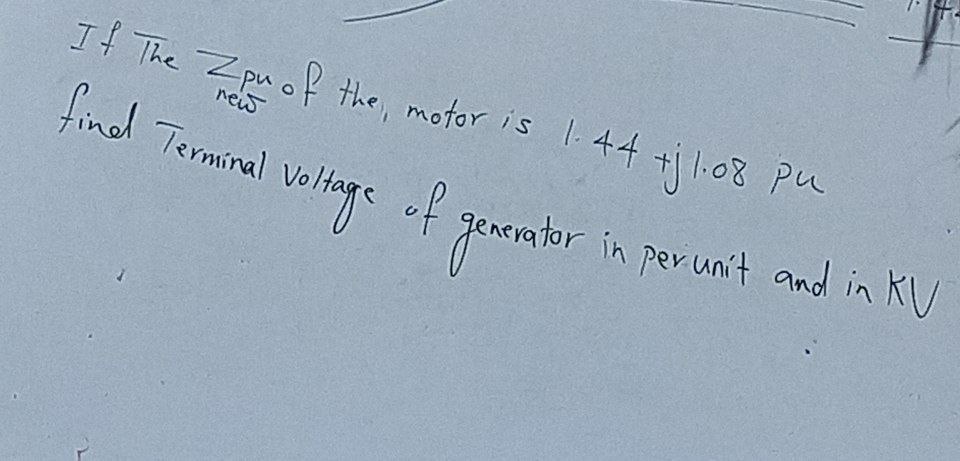 If The Zpu of the, motor is 1.44 +j1.08 pu
new
find Terminal Voltage of generator in perunit and in KV